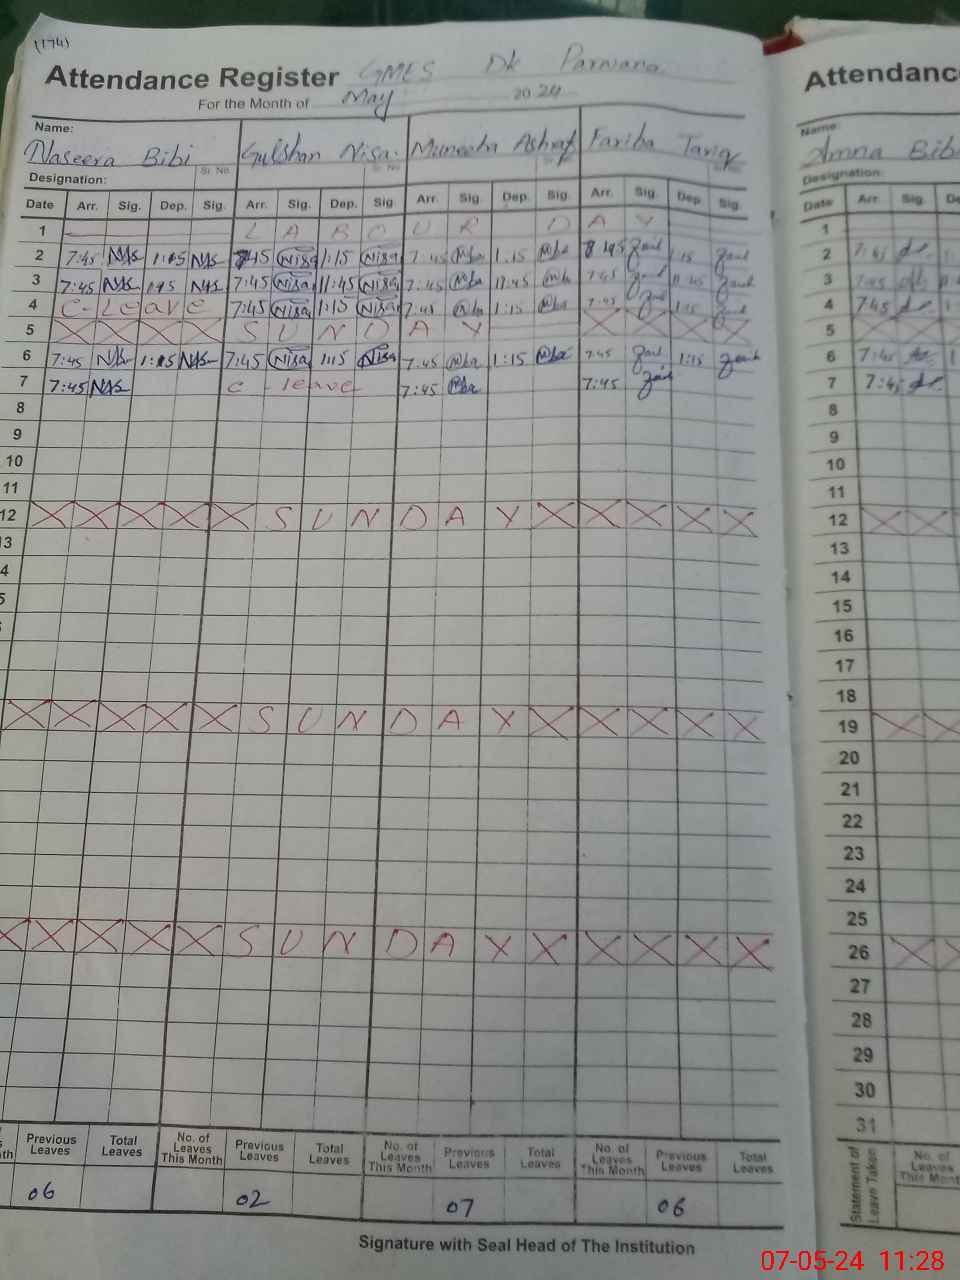 (174)
Attendance Register GMES Dk Parwana
For the Month of May 2024
Name:
Naseera Bibi Gulshan Nisa. Muneeba Ashraf Fariba Tariq
Sr. No Sr. No
Designation:
Date Arr. Sig. Dep. Sig. Arr. Sig. Dep. Sig. Arr. Sig. Dep. Sig. Arr. Sig. Dep. Sig.
1 L A B O U R D A Y
2 7:45 NAS 1:15 NAS 7:45 Nisa 1:15 Nisa 7:45 Mba 1:15 Mba
3 7:45 NAS NAS 7:45 Nisa 11:45 Nisa 7:45 Mba 11:45 Mba 7:45 11:45
4 C-Leave 7:45 Nisa 1:15 Nisa 7:45 Mba 1:15 Mba 7:45 1:15
5 X X X X S U N D A Y X X X X
6 7:45 NAS 1:15 NAS 7:45 Nisa 1:15 Nisa 7:45 Mba 1:15 Mba 7:45 1:15
7 7:45 NAS C-leave 7:45 Mba 7:45
8
9
10
11
12 X X X X X S U N D A Y X X X X X
13
4
5
X X X X X S U N D A Y X X X X X
X X X X X S U N D A Y X X X X X
Previous Leaves Total Leaves No. of Leaves This Month Previous Leaves Total Leaves No. of Leaves This Month Previous Leaves Total Leaves No. of Leaves This Month Previous Leaves Total Leaves
06 02 07 06
Signature with Seal Head of The Institution
Attendanc
Name:
Amna Bibi
Designation:
Date Arr. Sig. De
1
2 7:45
3 7:45
4 7:45
5 X X
6 7:45
7 7:45
8
9
10
11
12 X X
13
14
15
16
17
18
19 X X
20
21
22
23
24
25
26 X X
27
28
29
30
31
Statement of Leave Taken
No. of Leaves This Mont
07-05-24 11:28